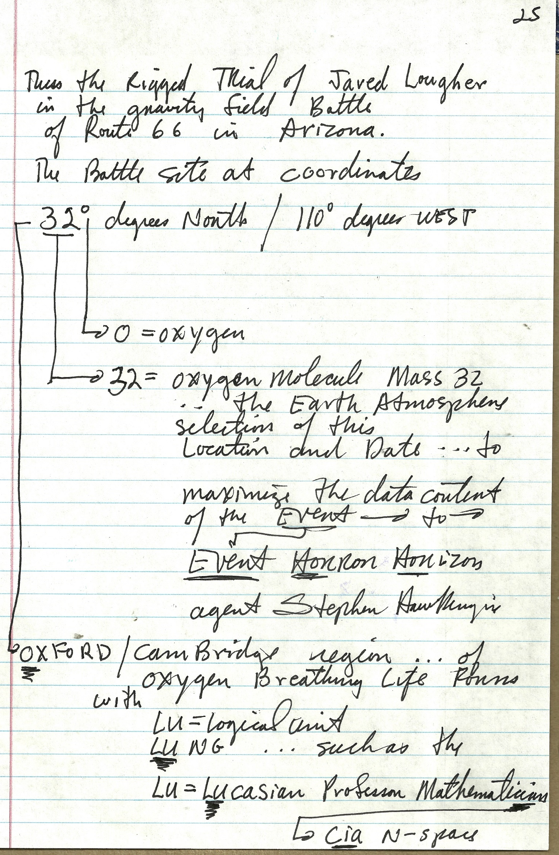 25
Thus the Rigged Trial of Jared Lougher
in the gravity field Battle
of Route 66 in Arizona.
The Battle site at coordinates
32° degrees North / 110° degrees WEST
O = oxygen
32 = oxygen molecule Mass 32
... the Earth Atmosphere
selection of this
Location and Date ... to
maximize the data content
of the Event → to →
Event Horror Horizon
agent Stephen Hawking in
OXFORD / CamBridge region ... of
oxygen Breathing Life Forms
with
LU = logical unit
LUNG ... such as the
LU = Lucasian Professor Mathematician
Cia N-space